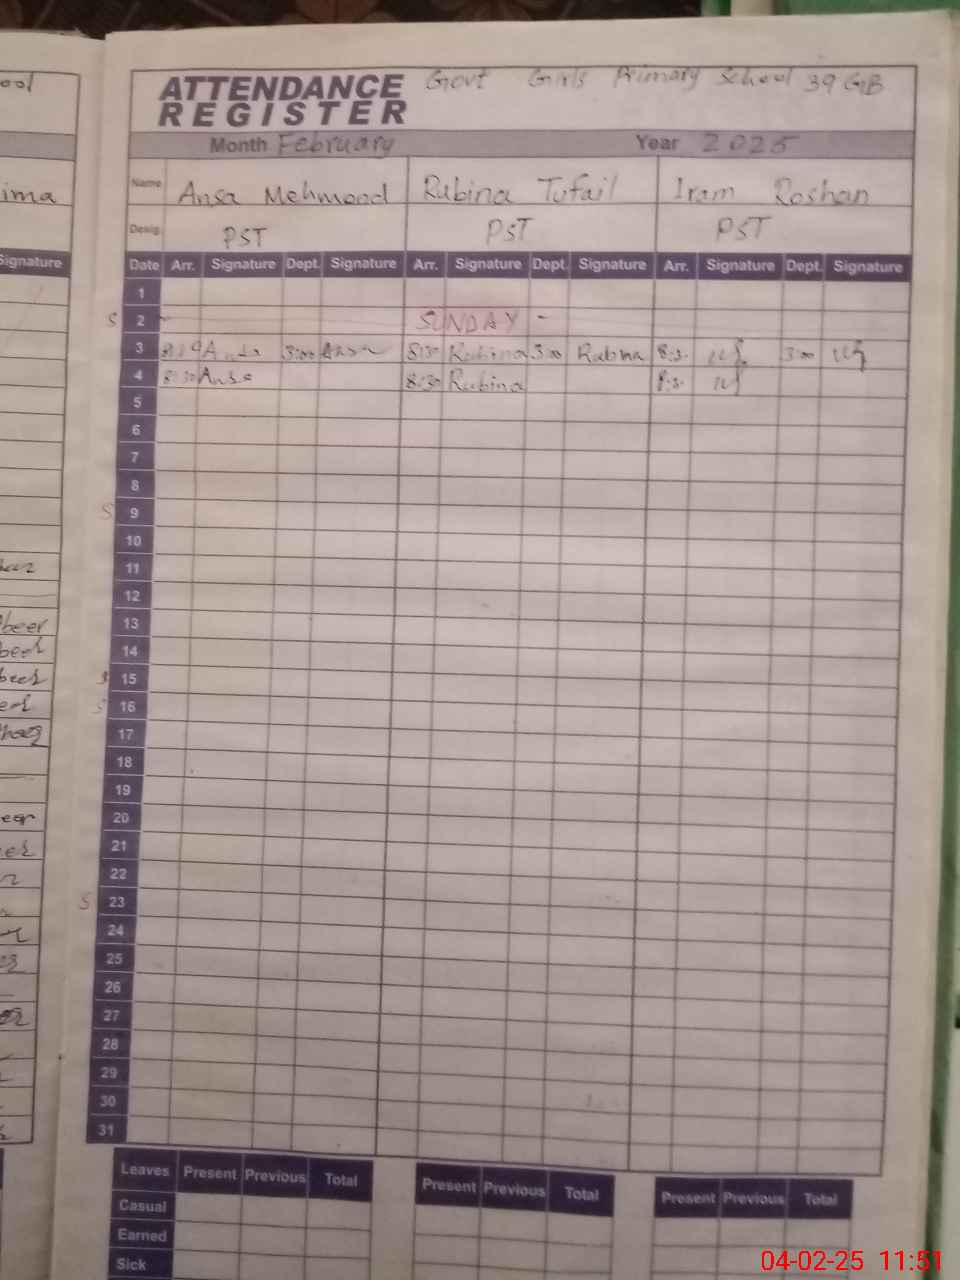 ool
ATTENDANCE REGISTER Govt Girls Primary School 39 GB
Month February Year 2025
ima
Name Ansa Mehmood Rubina Tufail Iram Roshan
Desig. PST PST PST
Signature
Date Arr. Signature Dept. Signature Arr. Signature Dept. Signature Arr. Signature Dept. Signature
1
S 2 SUNDAY -
3 Ansa 3:00 Ansa 8:30 Rubina 3:00 Rubina 8:3. 3:00
4 8:30 Ansa 8:30 Rubina 8:3.
5
6
7
8
S 9
10
11
12
13
beer
14
15
S 16
17
18
19
20
21
22
S 23
24
25
26
27
28
29
30
31
Leaves Present Previous Total Present Previous Total Present Previous Total
Casual
Earned
Sick
04-02-25 11:51